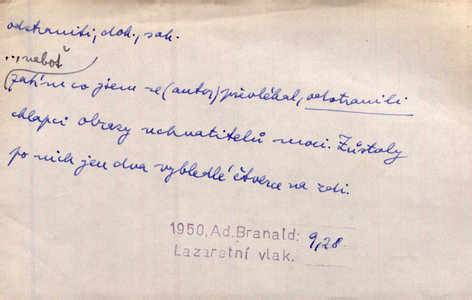 odstraniti, dok., sak.
..., neboť
(zatím co jsem se (autor) převlékal, odstranili
chlapci obrazy uchvatitelů moci. Zůstaly
po nich jen dva vybledlé čtverce na zdi.
1950, Ad.Branald: 9,28
Lazaretní vlak.